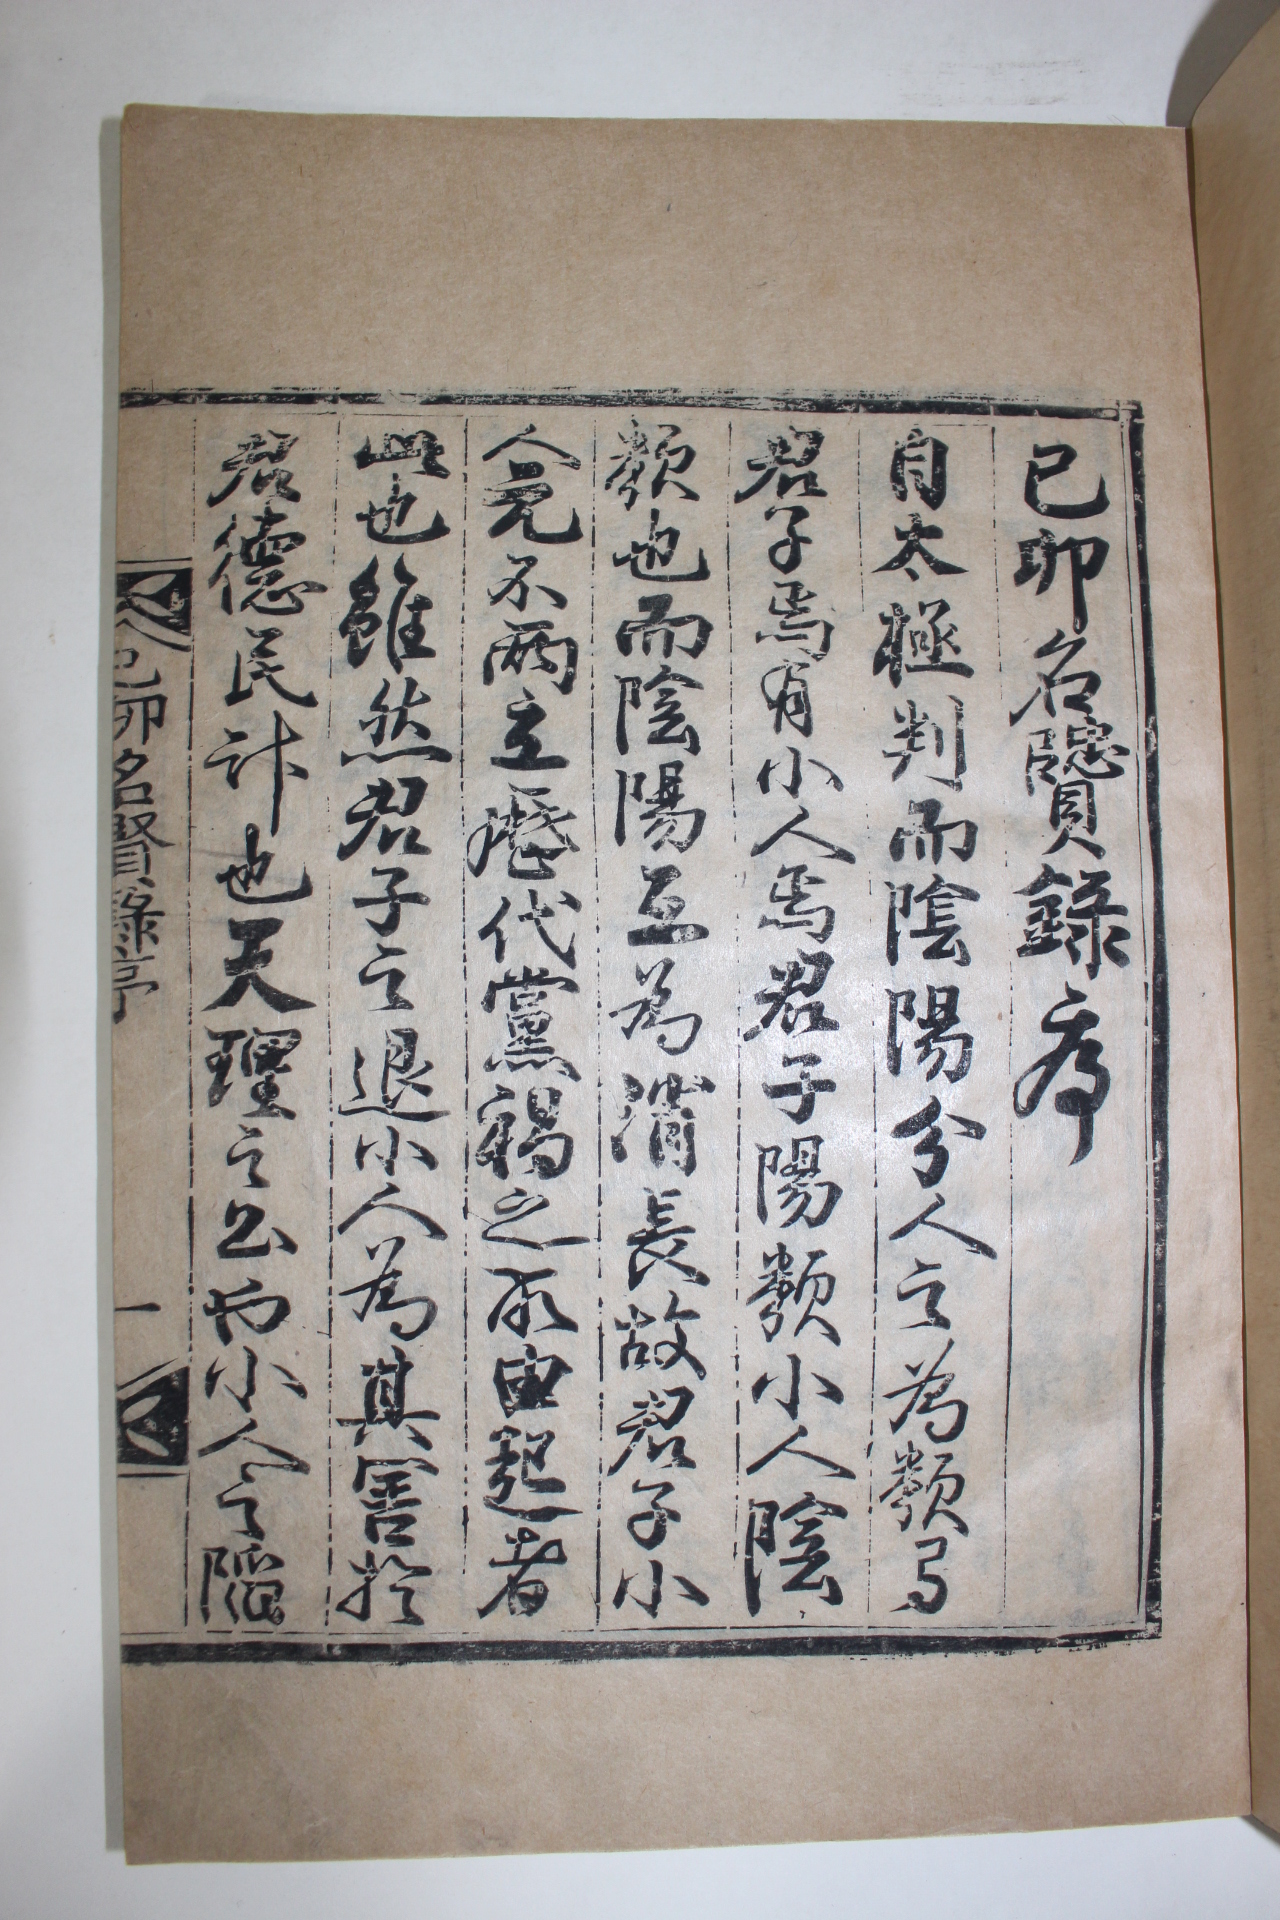 己卯名賢録序
自太極判而陰陽分人之為類焉
君子焉有小人焉君子陽類小人陰
類也而陰陽互為消長故君子小
人元不兩立歷代黨禍之所由起者
此也雖然君子之退小人為其害於
君德民計也天理之公而小人之
己卯名賢錄序
一